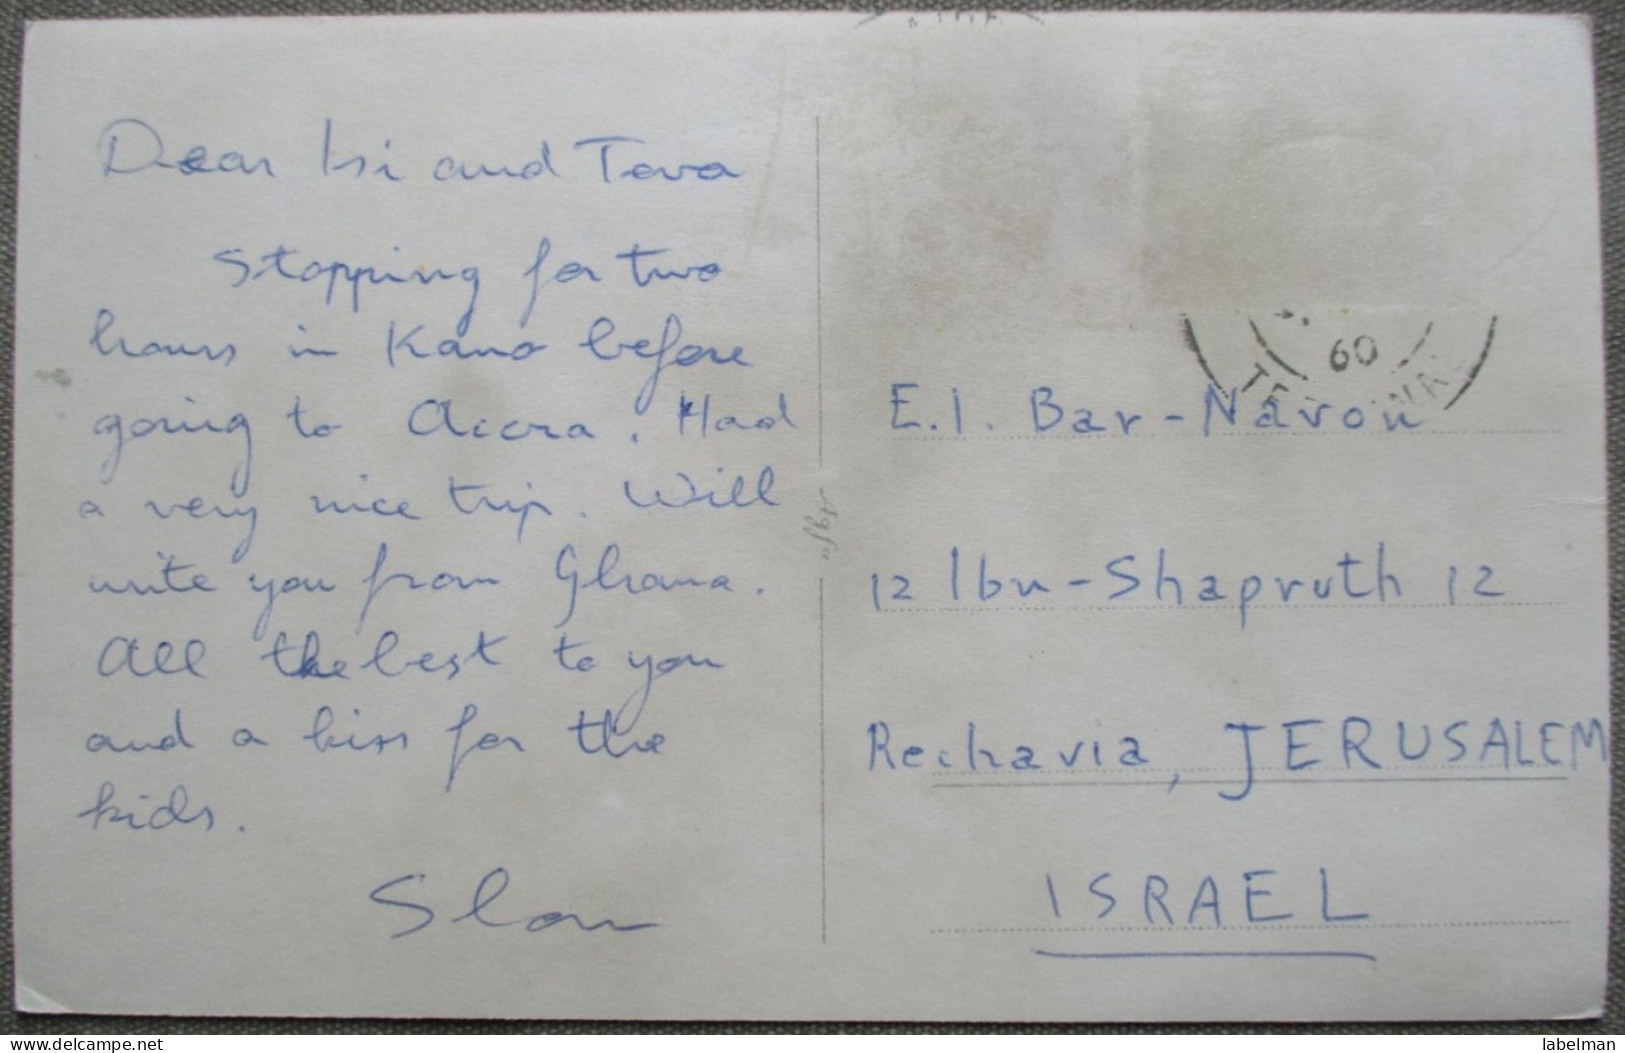 Dear Isi and Tova
Stopping for two
hours in Kano before
going to Accra. Had
a very nice trip. Will
write you from Ghana.
All the best to you
and a kiss for the
kids.
Agfa
60
E.I. Bar-Navon
12 Ibn-Shapruth 12
Rechavia, JERUSALEM
ISRAEL
www.delcampe.net
labelman